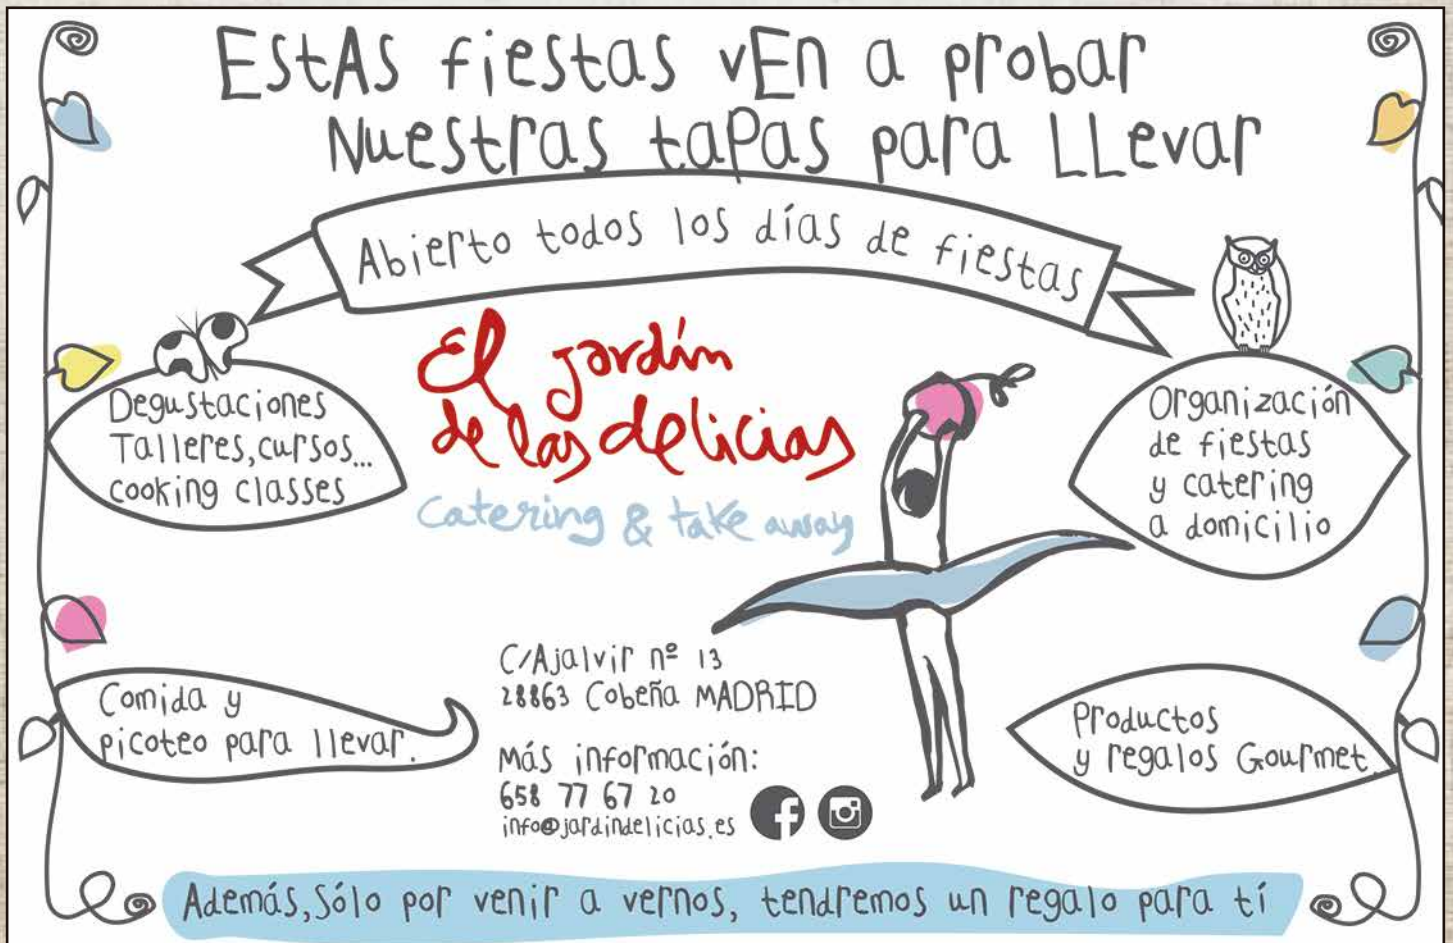 EstAs fiestas vEn a probar
Nuestras taPas para LLevar
Abierto todos los días de fiestas
El jardín
de las delicias
Catering & take away
Degustaciones
Talleres, cursos...
cooking classes
Organización
de fiestas
y catering
a domicilio
Comida y
picoteo para llevar.
C/Ajalvir nº 13
28863 Cobeña MADRID
Más información:
658 77 67 20
info@jardindelicias.es
Productos
y regalos Gourmet.
Además, Sólo por venir a vernos, tendremos un regalo para tí